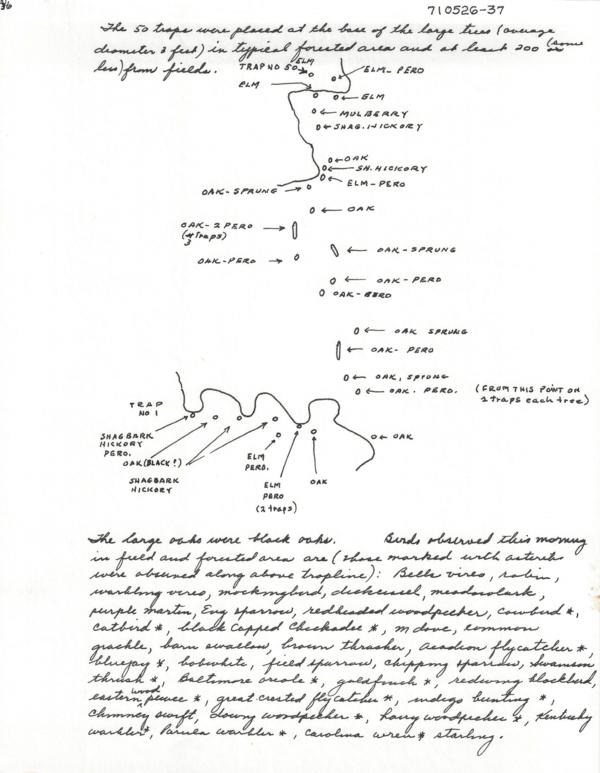 36
710526-37
The 50 traps were placed at the base of the large trees (average
diameter 3 feet) in typical forested area and at least 200 (some
less) from fields.
TRAP NO 50 ELM
ELM-PERO
ELM
ELM
MULBERRY
SHAG.HICKORY
OAK
SH.HICKORY
OAK-SPRUNG
ELM-PERO
OAK
OAK-2 PERO
(4 Traps)
3
OAK-SPRUNG
OAK-PERO
OAK-PERO
OAK-PERO
OAK SPRUNG
OAK-PERO
OAK, SPRUNG
OAK. PERO.
(FROM THIS POINT ON
2 traps each tree)
TRAP
NO 1
SHAGBARK
HICKORY
PERO.
OAK(BLACK?)
SHAGBARK
HICKORY
ELM
PERO.
ELM
PERO
(2 traps)
OAK
OAK
The large oaks were black oaks. Birds observed this morning
in field and forested area are (those marked with asterik
were observed along above trapline): Bells vireo, robin,
warbling vireo, mockingbird, dickcissel, meadowlark,
purple martin, Eng sparrow, redheaded woodpecker, cowbird *,
catbird *, black capped Chickadee *, m dove, common
grackle, barn swallow, brown thrasher, acadian flycatcher *,
bluejay *, bobwhite, field sparrow, chipping sparrow, Swainson
thrush *, Baltimore oriole *, goldfinch *, redwing blackbird,
eastern wood pewee *, great crested flycatcher *, indigo bunting *,
chimney swift, downy woodpecker *, hairy woodpecker *, Kentucky
warbler*, Parula warbler *, Carolina wren * starling.